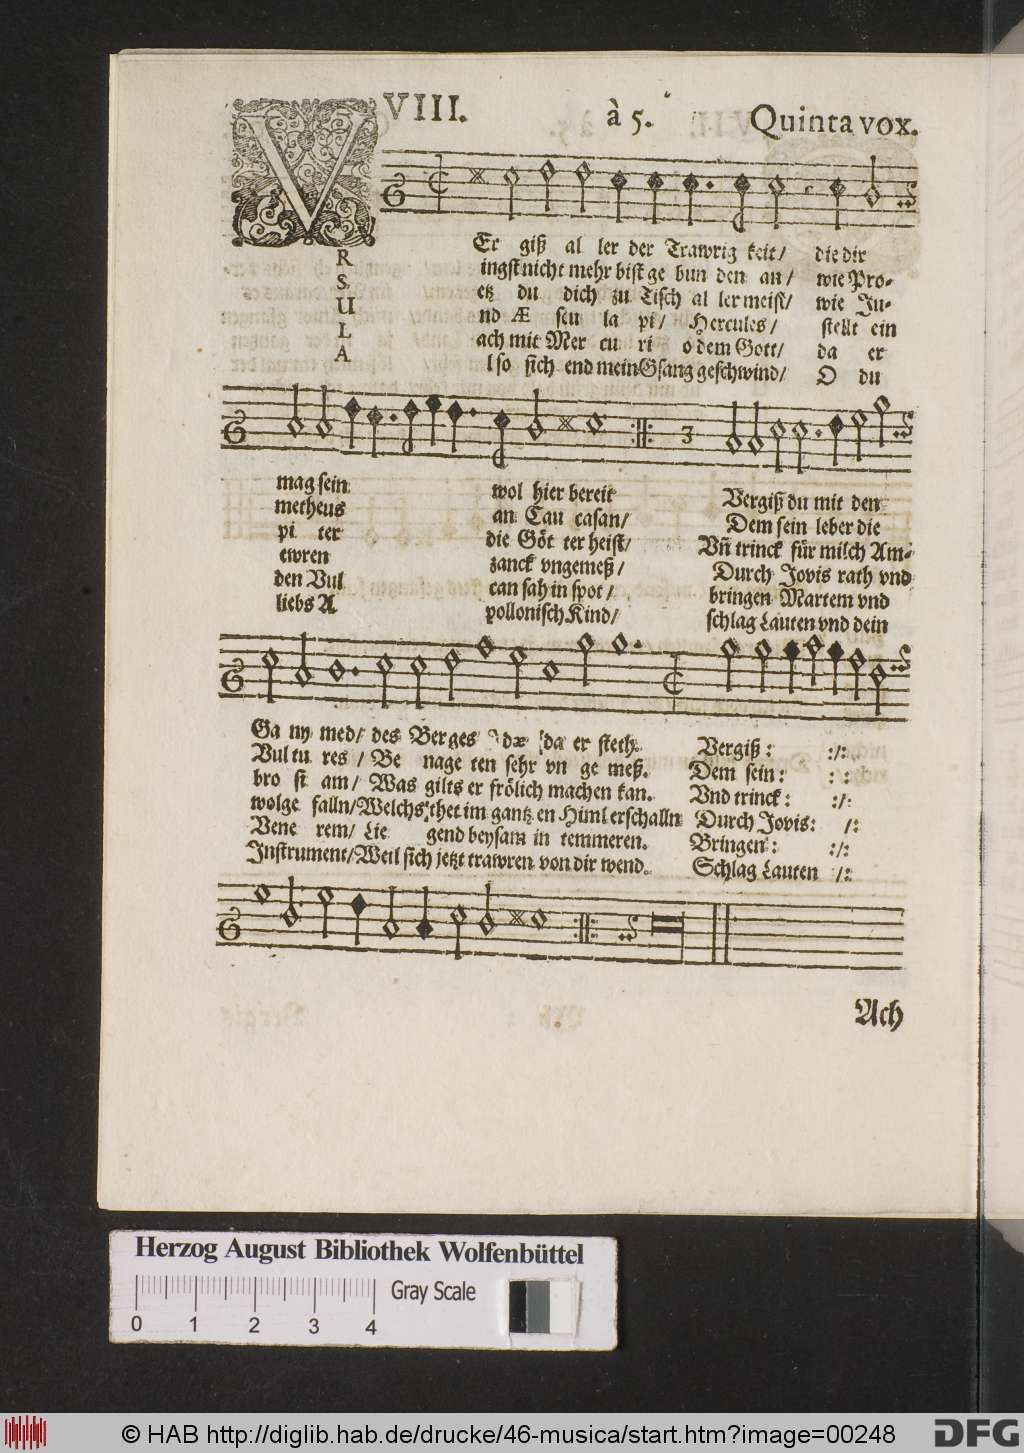 VIII. à 5. Quinta vox.
V Er giß al ler der Trawrig keit/ die dir
R ingst nicht mehr bist ge bun den an/ wie Pro-
S etz du dich zu Tisch al ler meist/ wie Ju-
U nd Æ seu la pi/ Hercules/ stellt ein
L ach mit Mer cu ri o dem Gott/ da er
A lso sich end mein Gsang geschwind/ O du
3
mag sein wol hier bereit Vergiß du mit den
metheus an Cau casan/ Dem sein leber die
pi ter die Göt ter heist/ Vñ trinck für milch Am-
ewren zanck vngemeß/ Durch Jovis rath vnd
den Vul can sah in spot/ bringen Martem vnd
liebs A pollonisch Kind/ schlag Lauten vnd dein
Ga ny med/ des Berges Idæ da er steth. Vergiß: :/:
Vul tu res/ Be nage ten sehr vn ge meß. Dem sein: :/:
bro si am/ Was gilts er frölich machen kan. Vnd trinck: :/:
wolge falln/ Welchs thet im gantz en Himl erschalln Durch Jovis: /:
Vene rem/ Lie gend beysam in temmeren. Bringen: :/:
Instrument/ Weil sich jetzt trawren von dir wend. Schlag Lauten /:
Ach
Herzog August Bibliothek Wolfenbüttel
Gray Scale
0 1 2 3 4
© HAB http://diglib.hab.de/drucke/46-musica/start.htm?image=00248
DFG